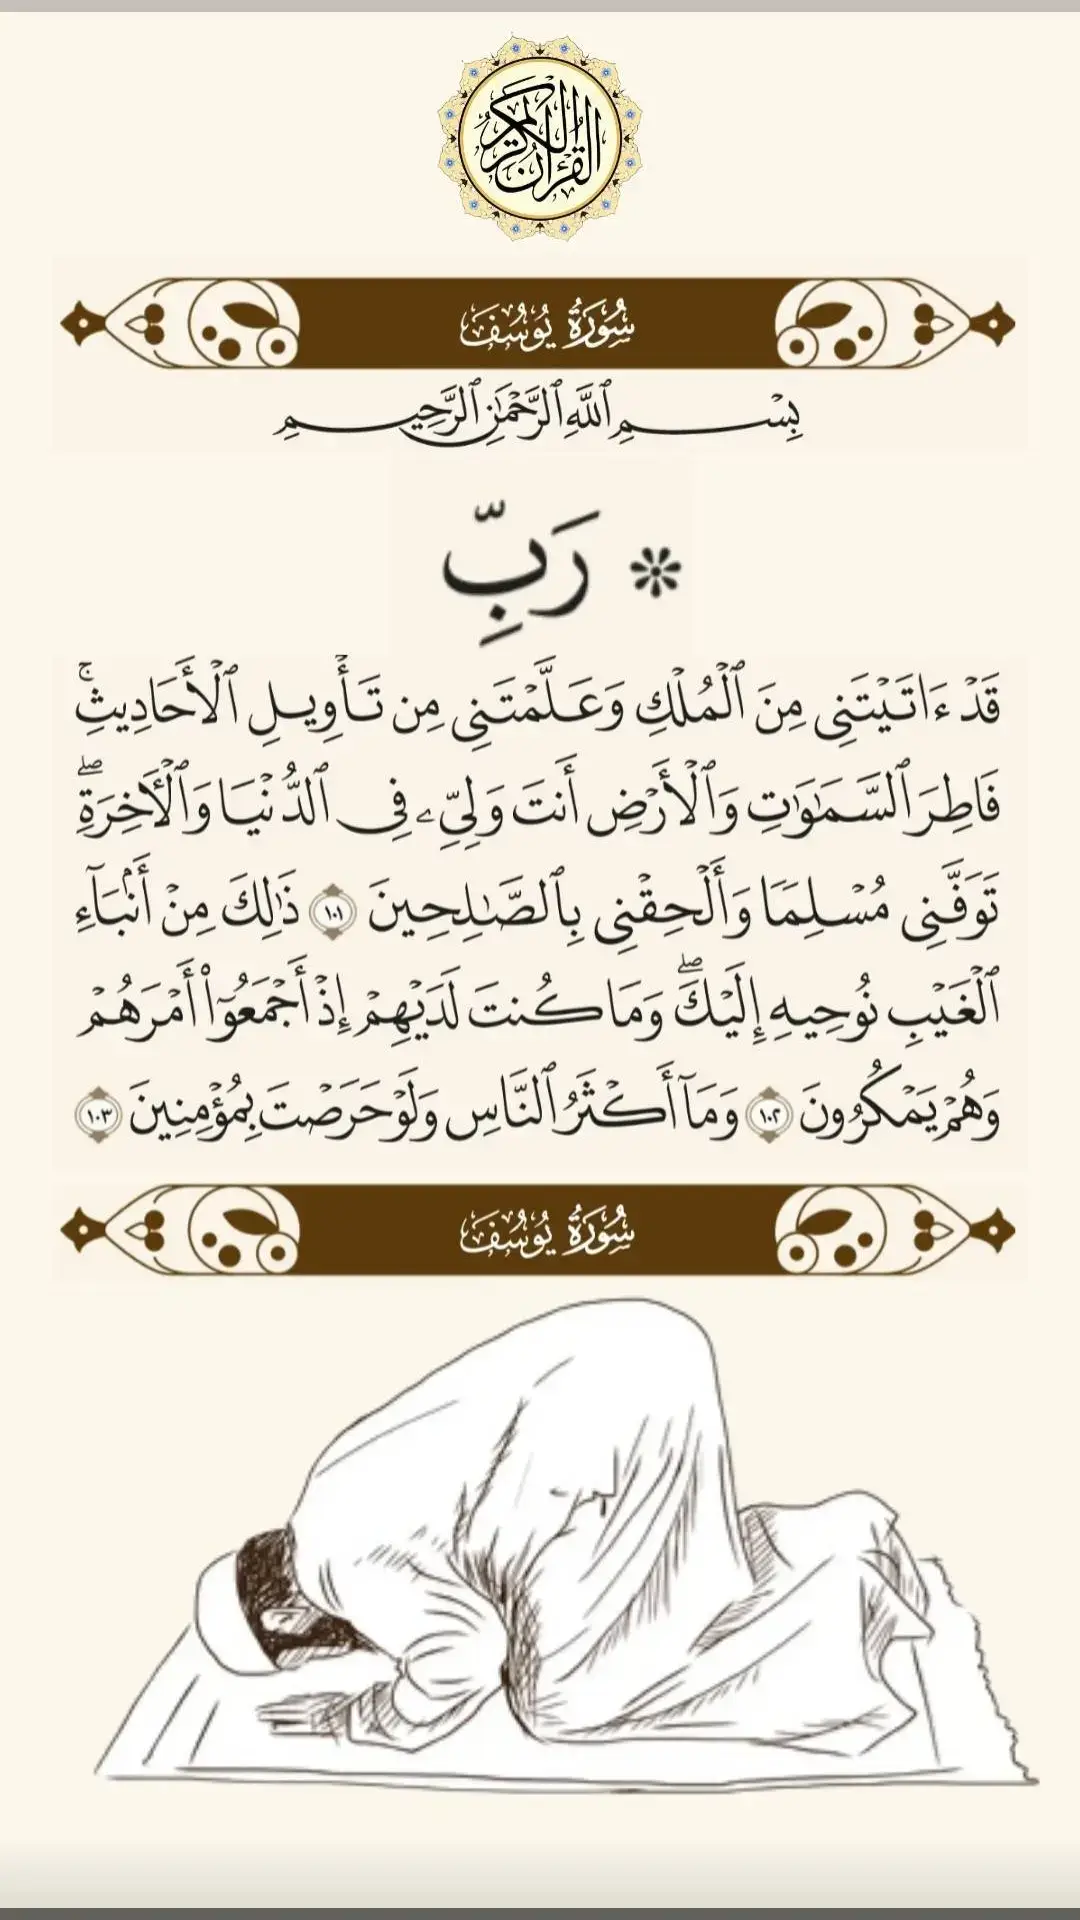 القرآن الكريم
سُورَةُ يُوسُفَ
بِسْمِ ٱللَّهِ ٱلرَّحْمَٰنِ ٱلرَّحِيمِ
۞ رَبِّ
قَدْ ءَاتَيْتَنِى مِنَ ٱلْمُلْكِ وَعَلَّمْتَنِى مِن تَأْوِيلِ ٱلْأَحَادِيثِۚ
فَاطِرَ ٱلسَّمَٰوَٰتِ وَٱلْأَرْضِ أَنتَ وَلِىِّۦ فِى ٱلدُّنْيَا وَٱلْءَاخِرَةِۖ
تَوَفَّنِى مُسْلِمًا وَأَلْحِقْنِى بِٱلصَّٰلِحِينَ ١٠١ ذَٰلِكَ مِنْ أَنۢبَآءِ
ٱلْغَيْبِ نُوحِيهِ إِلَيْكَۖ وَمَا كُنتَ لَدَيْهِمْ إِذْ أَجْمَعُوٓا۟ أَمْرَهُمْ
وَهُمْ يَمْكُرُونَ ١٠٢ وَمَآ أَكْثَرُ ٱلنَّاسِ وَلَوْ حَرَصْتَ بِمُؤْمِنِينَ ١٠٣
سُورَةُ يُوسُفَ